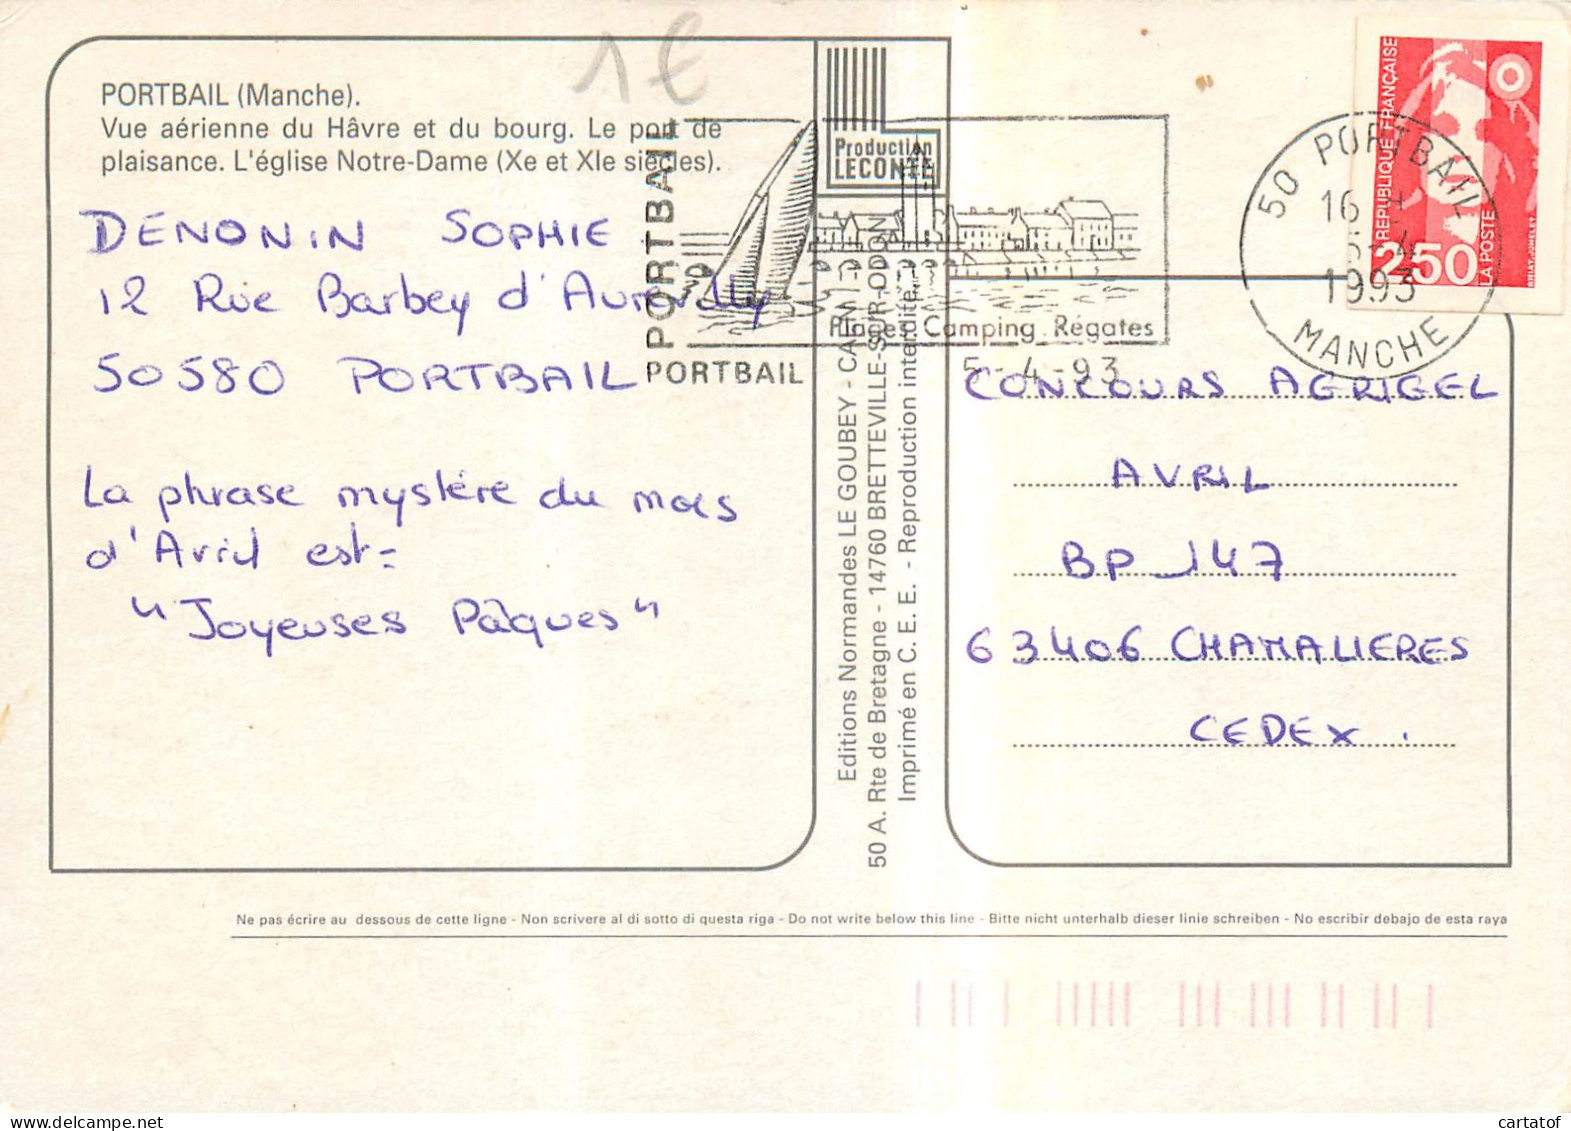 1€
PORTBAIL (Manche).
Vue aérienne du Hâvre et du bourg. Le port de
plaisance. L'église Notre-Dame (Xe et XIe siècles).
DENONIN SOPHIE
12 Rue Barbey d'Aurevilly
50580 PORTBAIL
La phrase mystère du mois
d'Avril est=
"Joyeuses Pâques"
Production
LECONTE
PORTBAIL
PORTBAIL
Plages Camping Régates
PORTBAIL
5-4-93
50 PORTBAIL
16 H
5-4
1993
MANCHE
REPUBLIQUE FRANÇAISE
2,50
LA POSTE
BRIAT-JUMELET
Editions Normandes LE GOUBEY - CAEN
50 A. Rte de Bretagne - 14760 BRETTEVILLE-SUR-ODON
Imprimé en C. E. E. - Reproduction interdite
CONCOURS AGRIGEL
AVRIL
BP 147
63406 CHAMALIERES
CEDEX.
Ne pas écrire au dessous de cette ligne - Non scrivere al di sotto di questa riga - Do not write below this line - Bitte nicht unterhalb dieser linie schreiben - No escribir debajo de esta raya
cartatof